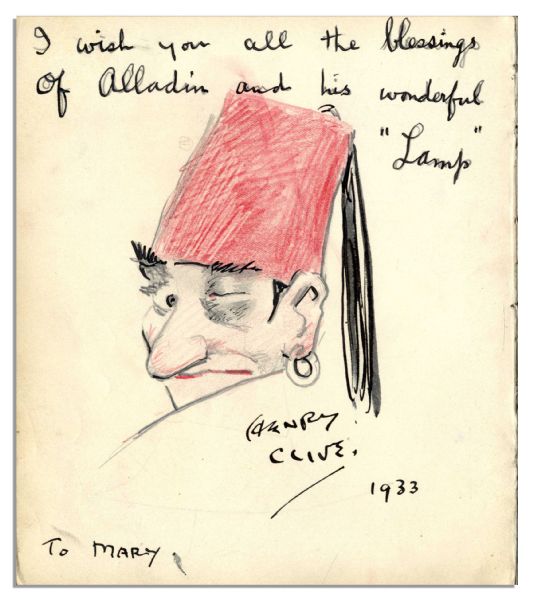 I wish you all the blessings
Of Alladin and his wonderful
"Lamp"
HENRY
CLIVE.
1933
To MARY